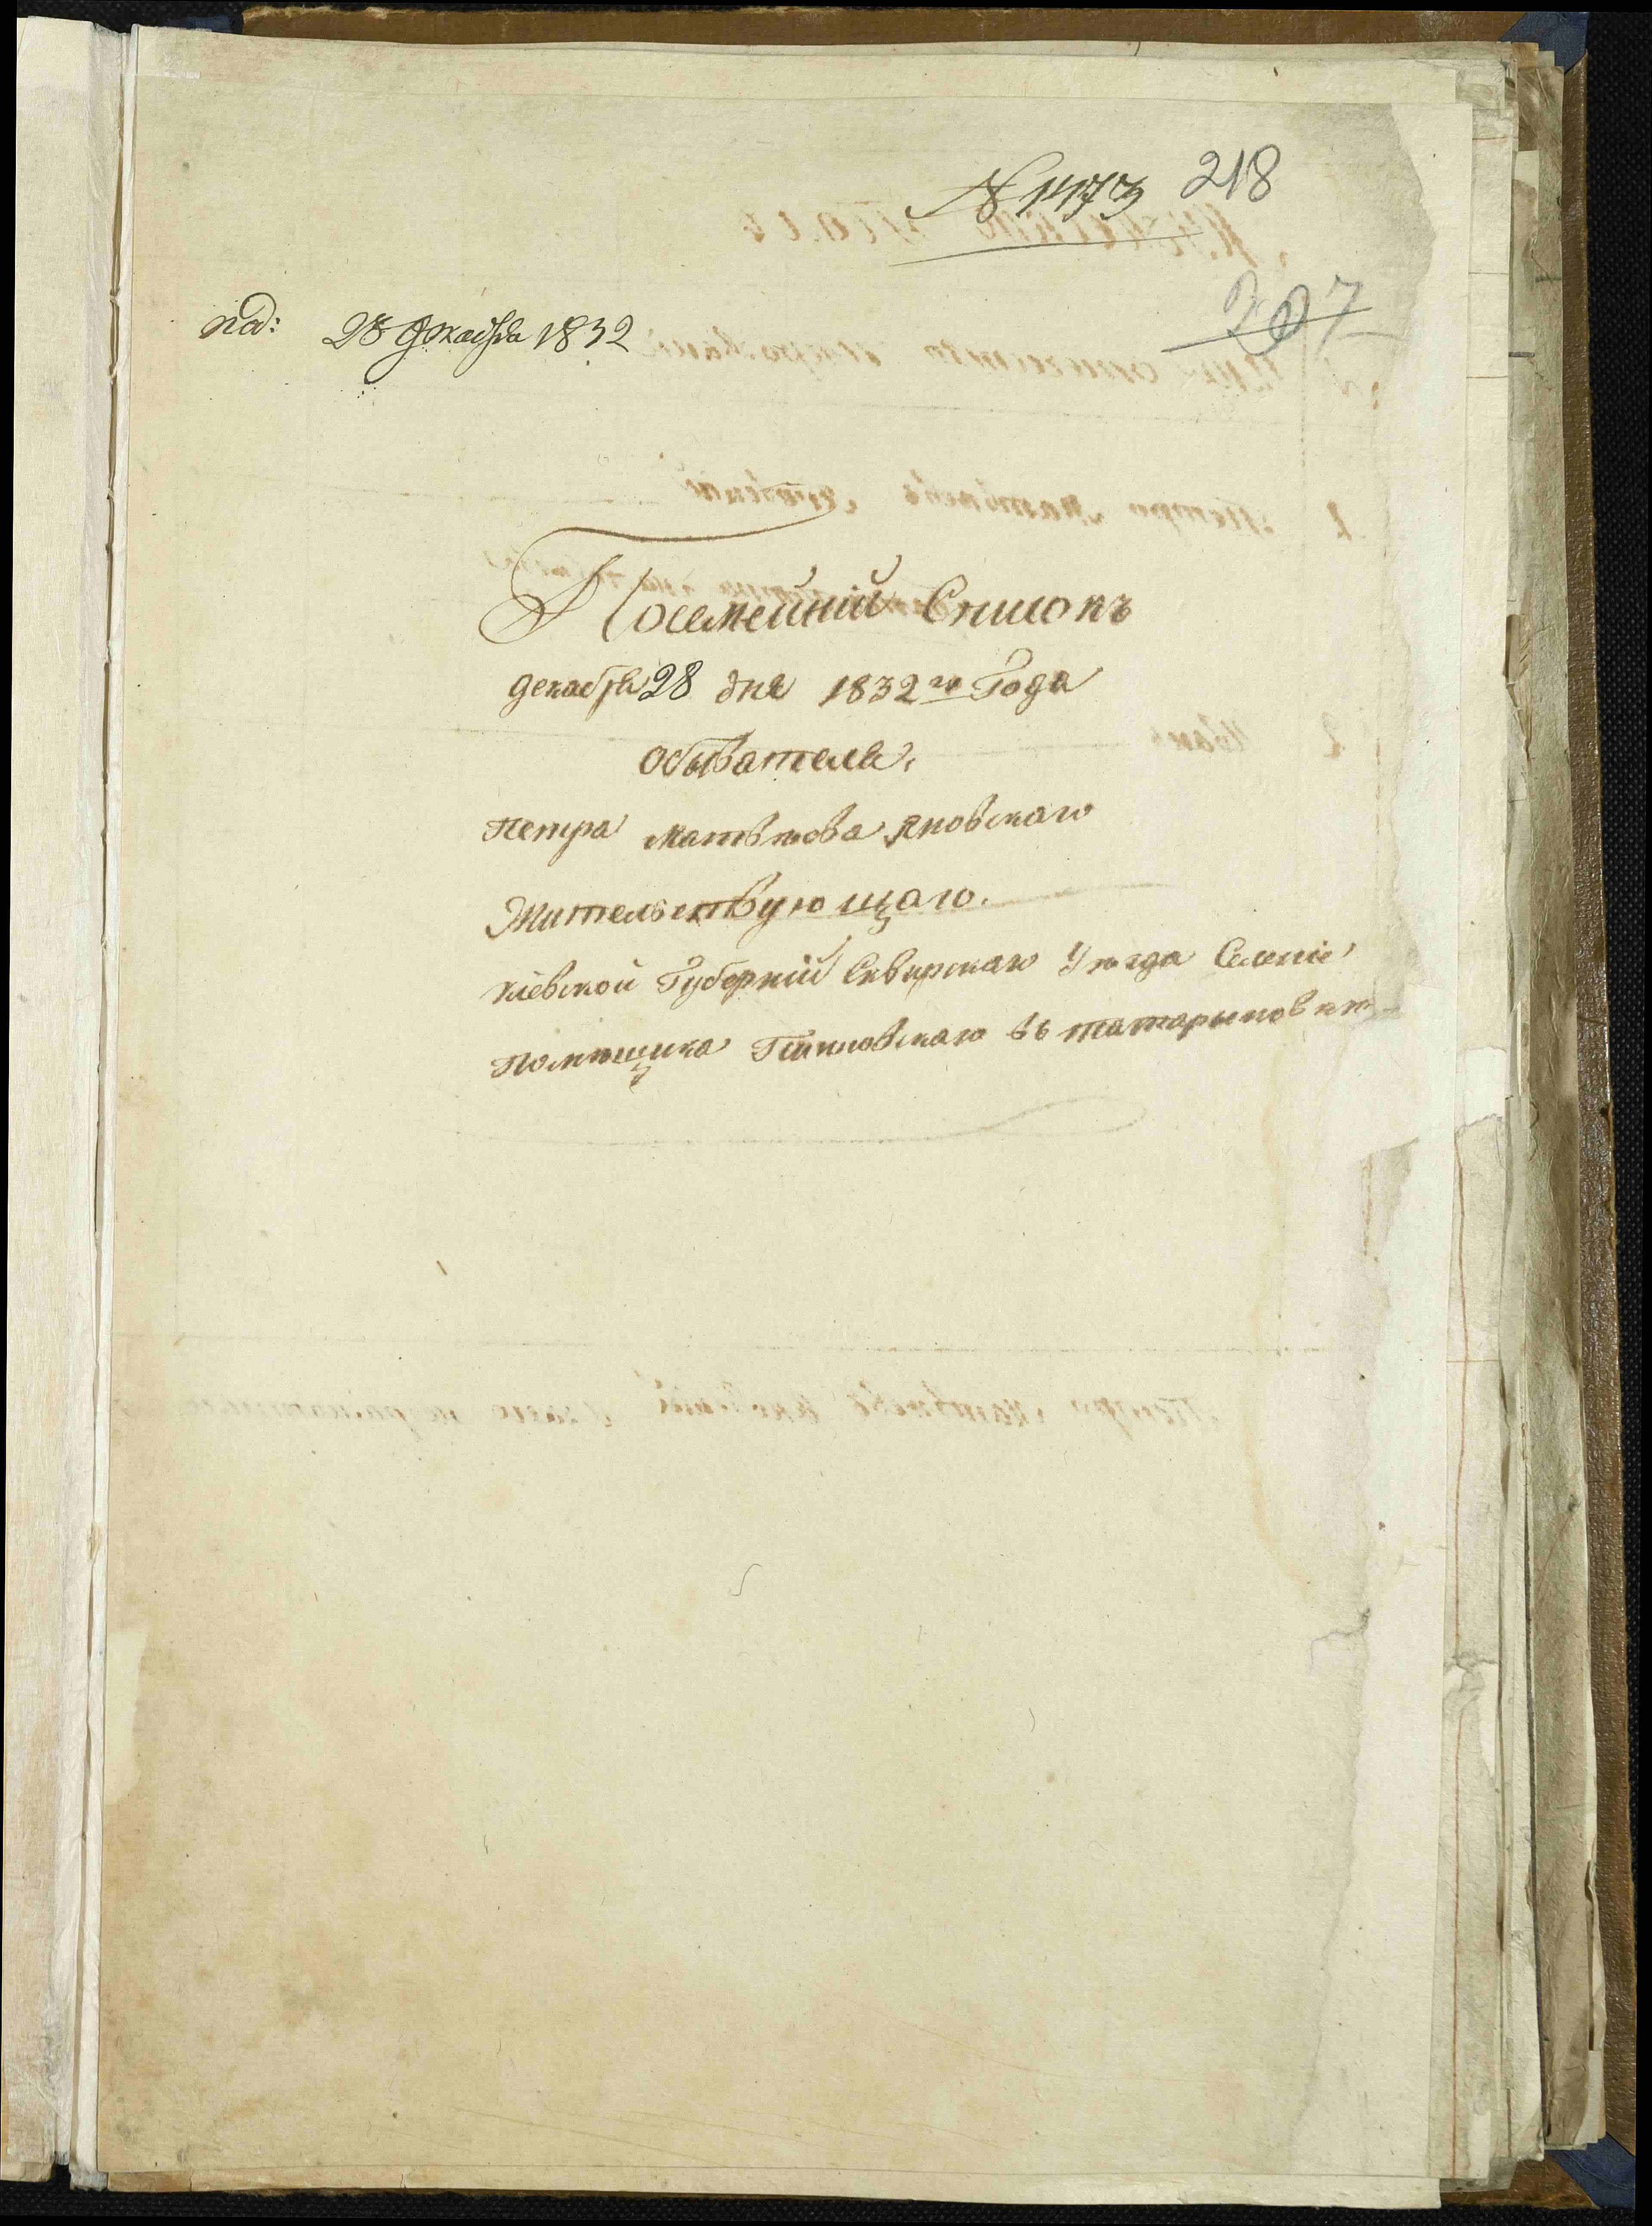 № 1473 218
207
под: 28 декабря 1832
Посемейный Списокъ
декабря 28 дня 1832го Года
Обывателя,
Петра Матвѣева Яновскаго
Жительствующаго.
Кіевской Губерніи Сквирскаго Уѣзда Селеніе
Помѣщика въ татариновкѣ